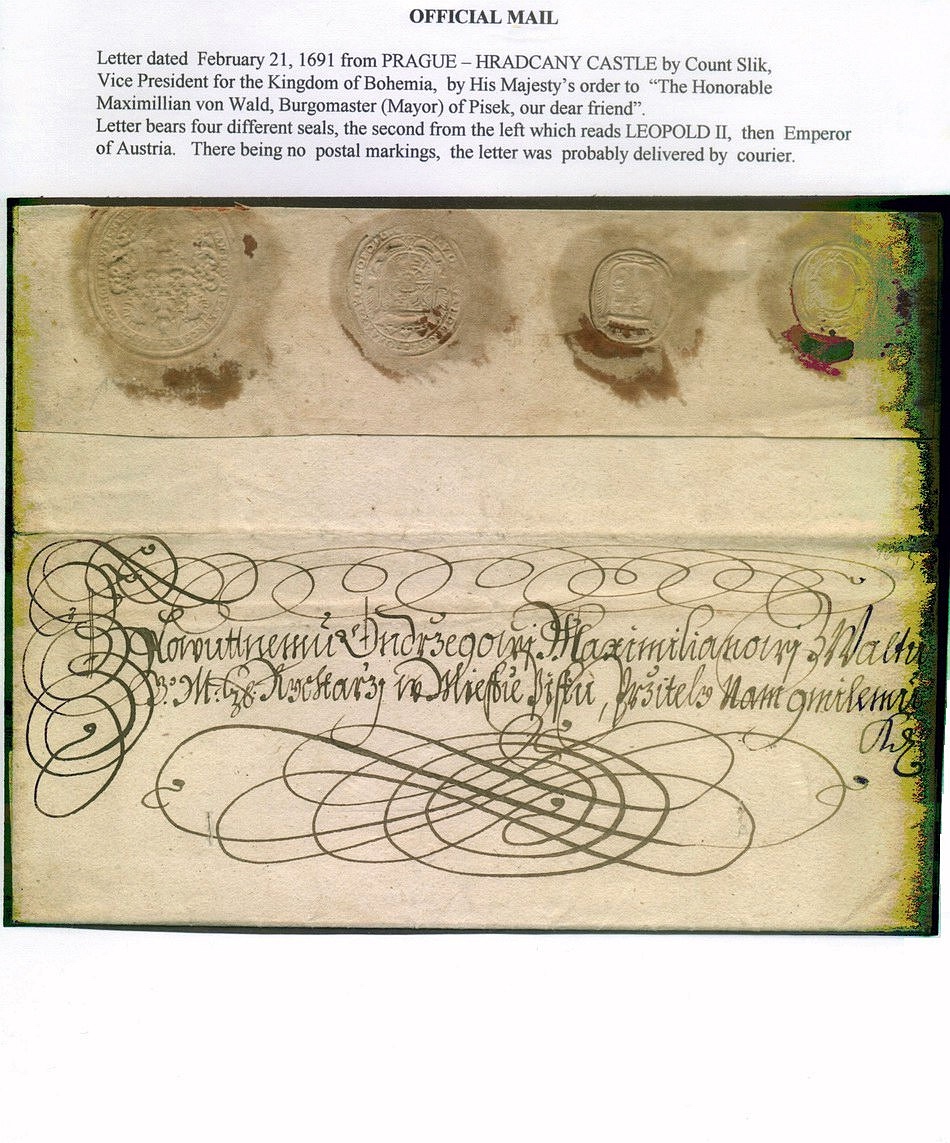 OFFICIAL MAIL
Letter dated February 21, 1691 from PRAGUE – HRADCANY CASTLE by Count Slik,
Vice President for the Kingdom of Bohemia, by His Majesty's order to "The Honorable
Maximillian von Wald, Burgomaster (Mayor) of Pisek, our dear friend".
Letter bears four different seals, the second from the left which reads LEOPOLD II, then Emperor
of Austria. There being no postal markings, the letter was probably delivered by courier.
Maximilianowj z Waltu
w Miestie Pisku, Przitely Nam gmilemu